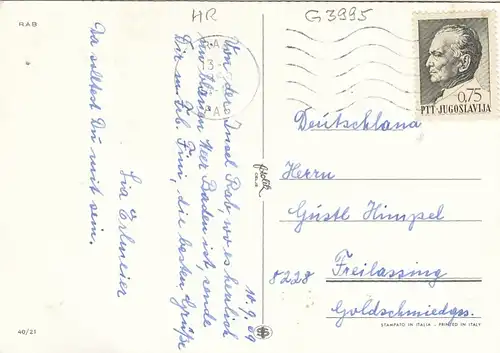 RAB
HR
G3995
0,75
PTT-JUGOSLAVIJA
10.9.69
Von der Insel Rab, wo es herrlich
im blauen Meer Baden ist, sende
Dir u. Frl. Fini, die besten Grüße
Lia Erlmeier
Da solltest Du mit sein.
Deutschland
Herrn
Gustl Himpel
8228 Freilassing
Goldschmiedgs.
STAMPATO IN ITALIA - PRINTED IN ITALY
40/21